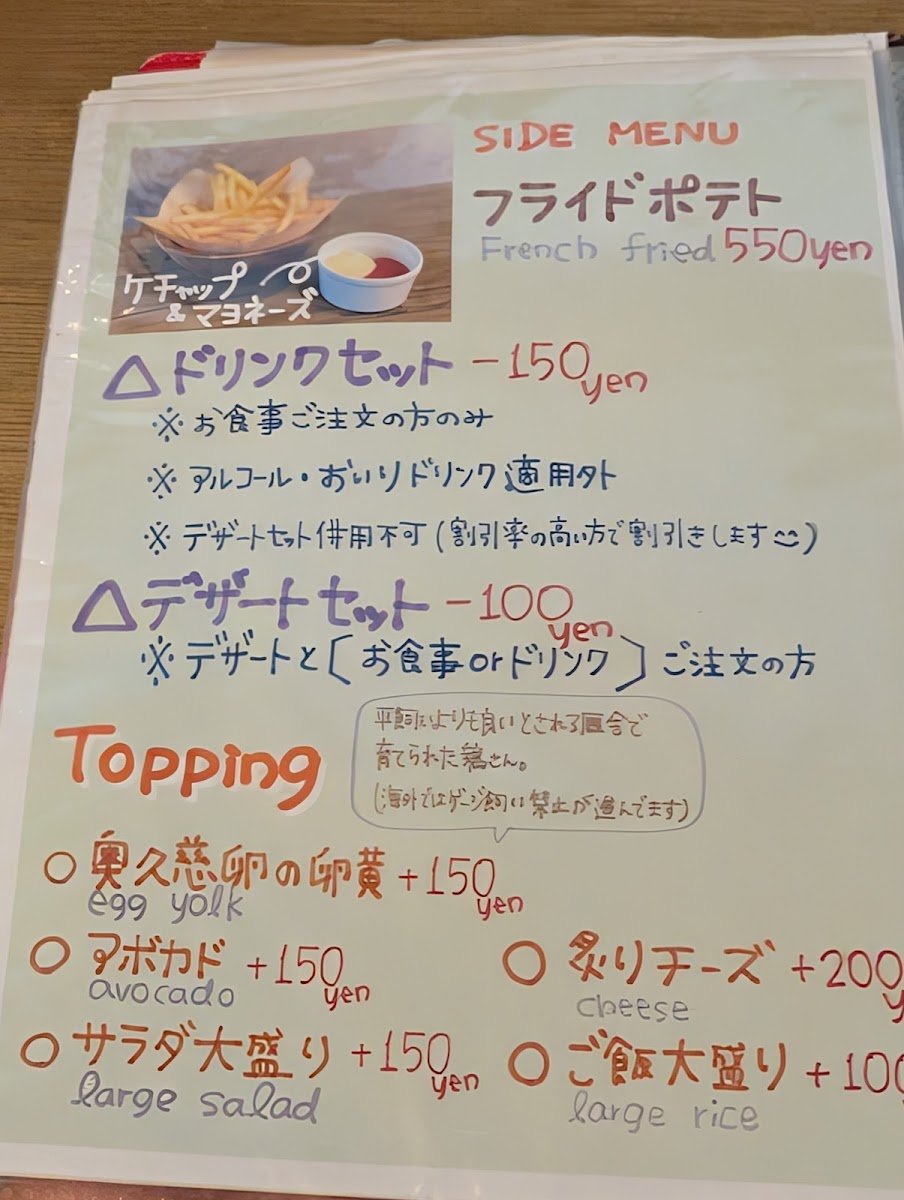 SIDE MENU
フライドポテト
French fried 550yen
ケチャップ
&マヨネーズ
△ドリンクセット -150yen
※お食事ご注文の方のみ
※アルコール・おいりドリンク適用外
※デザートセット併用不可(割引率の高い方で割引きします)
△デザートセット -100yen
※デザートと[お食事orドリンク]ご注文の方
Topping
平飼いよりも良いとされる区舎で
育てられた鶏さん。
(海外ではゲージ飼い禁止が進んでます)
○奥久慈卵の卵黄 +150yen
egg yolk
○アボカド +150yen
avocado
○炙りチーズ +200y
cheese
○サラダ大盛り +150yen
large salad
○ご飯大盛り +100
large rice